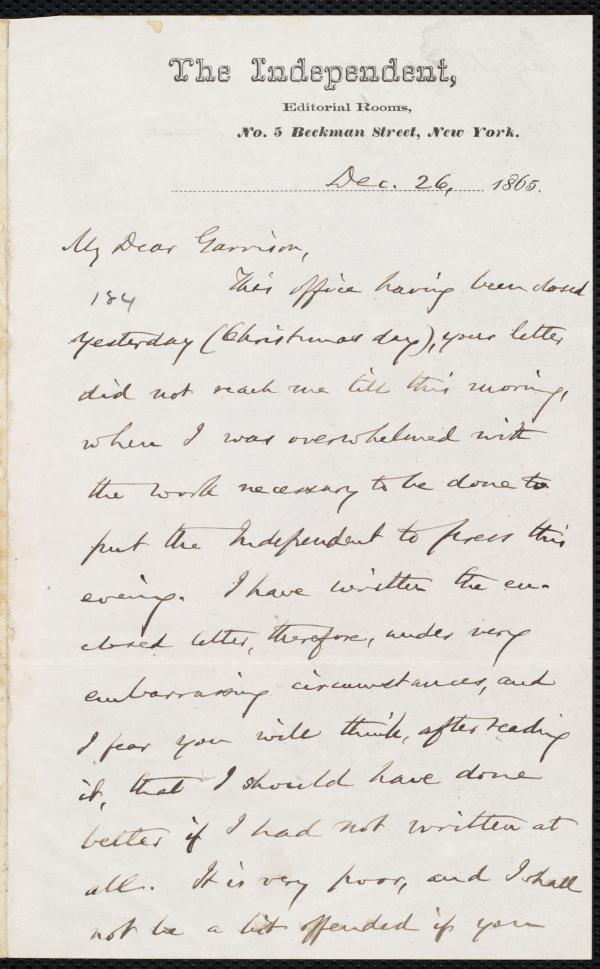 The Independent,
Editorial Rooms,
No. 5 Beekman Street, New York.
Dec. 26, 1865.
My Dear Garrison,
This office having been closed
184
yesterday (Christmas day), your letter
did not reach me till this morning,
when I was overwhelmed with
the work necessary to be done to
put the Independent to press this
evening. I have written the en-
closed letter, therefore, under very
embarrassing circumstances, and
I fear you will think, after reading
it, that I should have done
better if I had not written at
all. It is very poor, and I shall
not be a bit offended if you